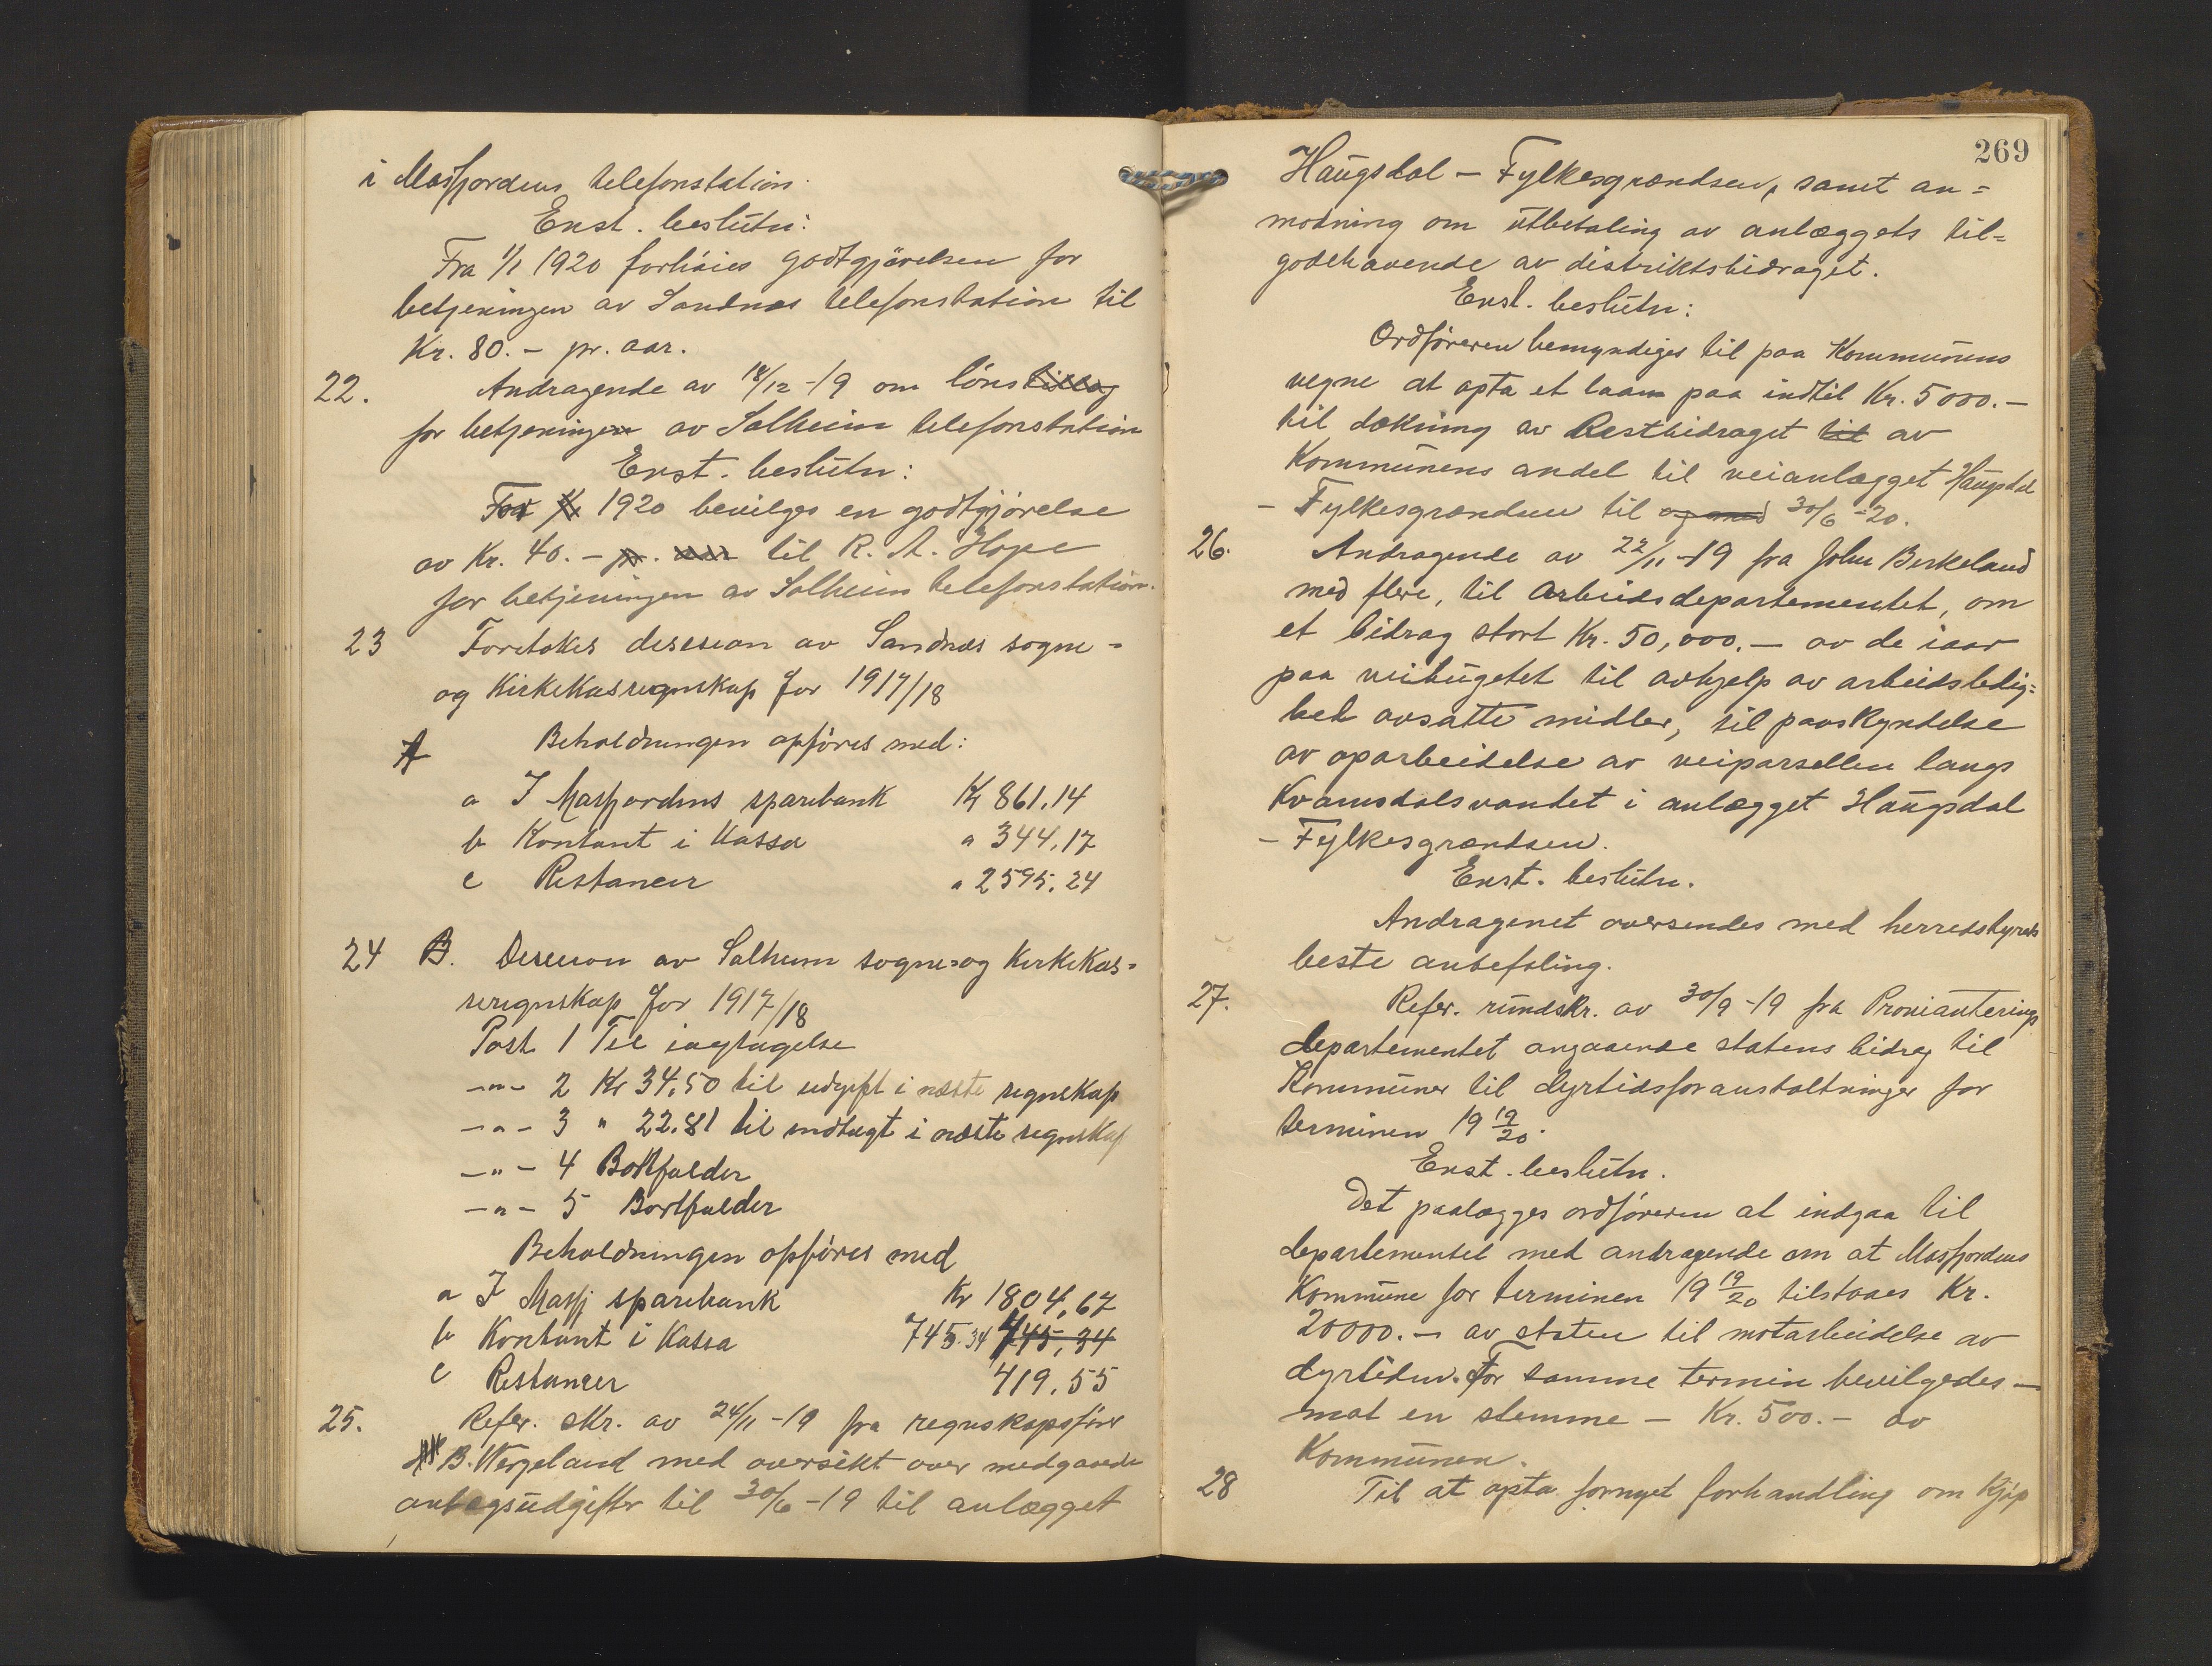 i Masfjordens telefonstation.
Enst. beslutn:
Fra 1/1 1920 forhöies godtgjörelsen for
betjeningen av Sandnes telefonstation til
Kr. 80.- pr. aar.
22. Andragende av 18/12-19 om lönstillæg
for betjeningen av Solheim telefonstation
Enst. beslutn:
For 1/1 1920 bevilges en godtgjörelse
av Kr. 40.- pr. aar til R. A. Hope
for betjeningen av Solheim telefonstation.
23 Foretokes desesion av Sandnes sogne-
og Kirkekasregnskap for 1917/18
A Beholdningen opföres med:
a I Masfjordens sparebank Kr 861.14
b Kontant i Kassa " 344,17
c Restancer " 2595,24
24 B. Desesion av Solheim sogne=og Kirkekas=
seregnskap for 1917/18
Post 1 Til iagtagelse
-"- 2 Kr 34,50 til udgift i næste regnskap
-"- 3 " 22.81 til indtægt i næste regnskap
-"- 4 Bortfalder
-"- 5 Bortfalder
Beholdningen opföres med
a I Masfj sparebank Kr 1804,67
b Kontant i Kassa 745.34 745,34
c Restancer 419.55
25. Refer. skr. av 24/11-19 fra regnskapsförer
B. Wergeland med oversikt over medgaaede
anlægsudgifter til 30/6-19 til anlægget
269
Haugsdal - Fylkesgrændsen, samt an=
modning om utbetaling av anlæggets til=
godehavende av distriktsbidraget.
Enst. beslutn:
Ordföreren bemyndiges til paa Kommunens
vegne at opta et laan paa indtil Kr. 5000.-
til dækning av Restbidraget til av
Kommunens andel til veianlægget Haugsdal
- Fylkesgrændsen til og med 30/6-20.
26. Andragende av 22/11-19 fra John Birkeland
med flere, til Arbeidsdepartementet, om
et bidrag stort Kr. 50,000.- av de iaar
paa veibugetet til avhjelp av arbeidsledig=
het avsatte midler, til paaskyndelse
av oparbeidelse av veiparsellen langs
Kvamsdalsvandet i anlægget Haugsdal
- Fylkesgrændsen.
Enst. beslutn.
Andragenet oversendes med herredstyrets
beste anbefaling.
27. Refer. rundskr. av 30/9-19 fra Provianterings
departementet angaaende statens bidrag til
Kommuner til dyrtidsforanstaltninger for
terminen 19 19/20.
Enst. beslutn.
Det paalægges ordföreren at indgaa til
departementet med andragende om at Masfjordens
Kommune for terminen 19 19/20 tilstaaes Kr.
20000.- av staten til motarbeidelse av
dyrtiden. For samme termin bevilgedes -
mot en stemme - Kr. 500.- av
Kommunen.
28 Til at opta fornyet forhandling om Kjöp